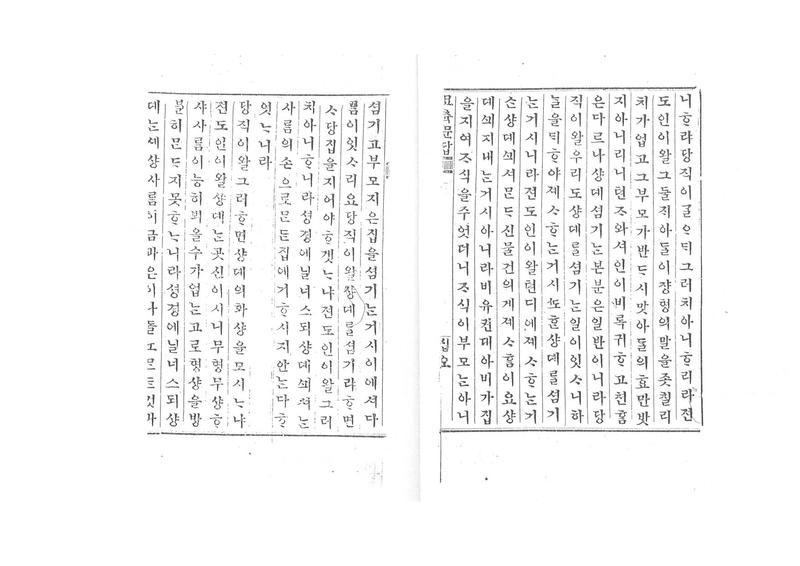 니ᄒᆞ랴당직이ᄀᆞᆯᄋᆞᄃᆡ그러치아니ᄒᆞ리라젼
도인이왈그둘ᄌᆡ아ᄃᆞᆯ이쟝형의말을좃칠리
치가업고그부모가반ᄃᆞ시맛아ᄃᆞᆯ의효만밧
지아니리니현ᄌᆞ와셔인이비록귀ᄒᆞ고쳔홈
은다르나샹뎨셤기ᄂᆞᆫ본분은일반이니라당
직이왈우리도샹뎨를셤기ᄂᆞᆫ일이잇ᄉᆞ니하
ᄂᆞᆯ을ᄃᆡᄒᆞ야졔ᄉᆞᄒᆞᄂᆞᆫ거시ᄯᅩᄒᆞᆫ샹뎨를셤기
ᄂᆞᆫ거시니라젼도인이왈텬디에졔ᄉᆞᄒᆞᄂᆞᆫ거
ᄉᆞᆫ샹뎨ᄭᅴ셔ᄆᆞᆫᄃᆞ신물건의게졔ᄉᆞ홈이요샹
뎨ᄭᅴ지내ᄂᆞᆫ거시아니라비유컨대아비가집
을지여ᄌᆞ식을주엇더니ᄌᆞ식이부모ᄂᆞᆫ아니
묘츅문답
십오
셤기고부모지은집을셤기ᄂᆞᆫ거시이에셔다
름이잇ᄉᆞ리요당직이왈샹뎨를셤기랴ᄒᆞ면
ᄉᆞ당집을지어야ᄒᆞ겟ᄂᆞ냐젼도인이왈그러
치아니ᄒᆞ니라셩경에닐너스되샹뎨ᄭᅴ셔ᄂᆞᆫ
사ᄅᆞᆷ의손으로ᄆᆞᆫ든집에거ᄒᆞ시지안ᄂᆞᆫ다ᄒᆞ
엿ᄂᆞ니라
당직이왈그러ᄒᆞ면샹뎨의화샹을모시ᄂᆞ냐
젼도인이왈샹뎨ᄂᆞᆫ곳신이시니무형무샹ᄒᆞ
샤사ᄅᆞᆷ이능히뵈을수가업ᄂᆞᆫ고로형샹을방
불히ᄆᆞᆫᄃᆞ지못ᄒᆞᄂᆞ니라셩경에닐너스되샹
뎨ᄂᆞᆫ세샹사ᄅᆞᆷ이금과은이나돌노ᄆᆞᆫᄃᆞᆫ것과